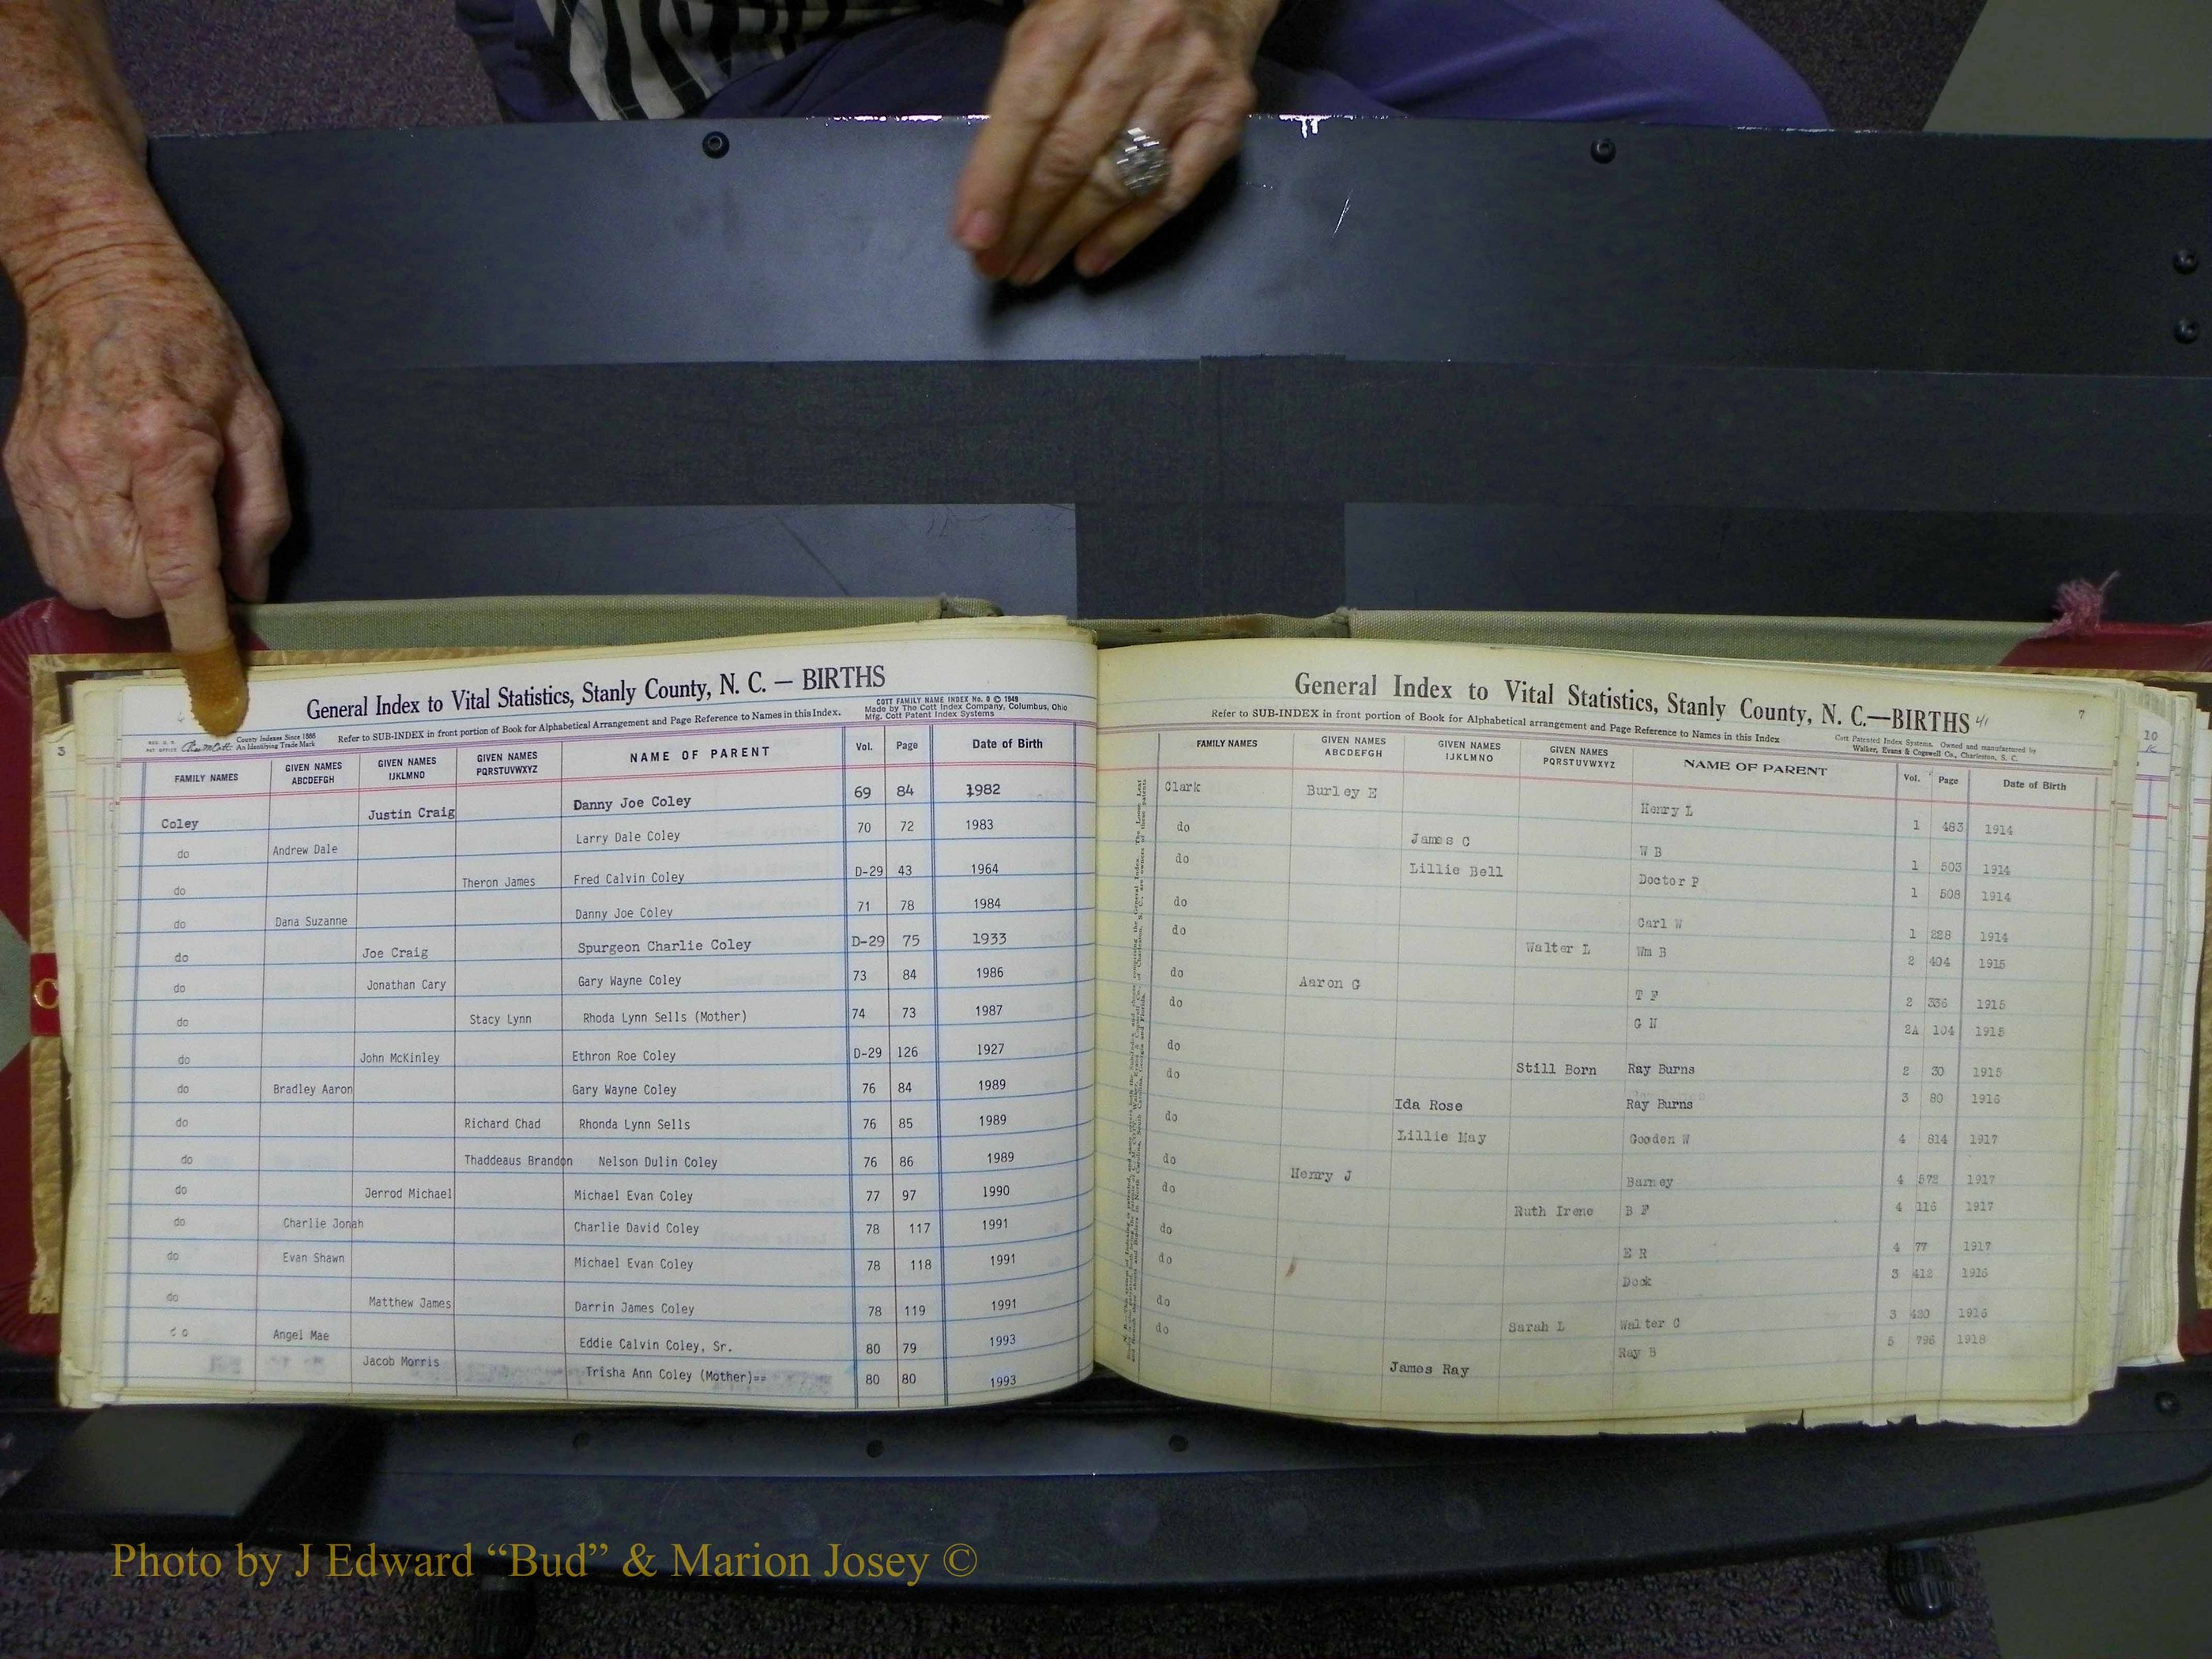 General Index to Vital Statistics, Stanly County, N. C. — BIRTHS
COTT FAMILY NAME INDEX No. 6 © 1949
Made by The Cott Index Company, Columbus, Ohio
Mfg. Cott Patent Index Systems
County Indexes Since 1888
An Identifying Trade Mark
Refer to SUB-INDEX in front portion of Book for Alphabetical Arrangement and Page Reference to Names in this Index.
FAMILY NAMES GIVEN NAMES ABCDEFGH GIVEN NAMES IJKLMNO GIVEN NAMES PQRSTUVWXYZ NAME OF PARENT Vol. Page Date of Birth
Coley Justin Craig Danny Joe Coley 69 84 1982
do Andrew Dale Larry Dale Coley 70 72 1983
do Theron James Fred Calvin Coley D-29 43 1964
do Dana Suzanne Danny Joe Coley 71 78 1984
do Joe Craig Spurgeon Charlie Coley D-29 75 1933
do Jonathan Cary Gary Wayne Coley 73 84 1986
do Stacy Lynn Rhoda Lynn Sells (Mother) 74 73 1987
do John McKinley Ethron Roe Coley D-29 126 1927
do Bradley Aaron Gary Wayne Coley 76 84 1989
do Richard Chad Rhonda Lynn Sells 76 85 1989
do Thaddeaus Brandon Nelson Dulin Coley 76 86 1989
do Jerrod Michael Michael Evan Coley 77 97 1990
do Charlie Jonah Charlie David Coley 78 117 1991
do Evan Shawn Michael Evan Coley 78 118 1991
do Matthew James Darrin James Coley 78 119 1991
do Angel Mae Eddie Calvin Coley, Sr. 80 79 1993
Jacob Morris Trisha Ann Coley (Mother)== 80 80 1993
3
General Index to Vital Statistics, Stanly County, N. C.—BIRTHS 41
7
Refer to SUB-INDEX in front portion of Book for Alphabetical arrangement and Page Reference to Names in this Index
Cott Patented Index Systems. Owned and manufactured by
Walker, Evans & Cogswell Co., Charleston, S. C.
FAMILY NAMES GIVEN NAMES ABCDEFGH GIVEN NAMES IJKLMNO GIVEN NAMES PQRSTUVWXYZ NAME OF PARENT Vol. Page Date of Birth
Clark Burley E Henry L 1 483 1914
do James C W B 1 503 1914
do Lillie Bell Doctor P 1 508 1914
do Carl W 1 228 1914
do Walter L Wm B 2 404 1915
do Aaron G T F 2 336 1915
do G H 2A 104 1915
do Still Born Ray Burns 2 30 1915
do Ida Rose Ray Burns 3 80 1916
do Lillie May Gooden W 4 814 1917
do Henry J Barney 4 572 1917
do Ruth Irene B F 4 116 1917
do E R 4 77 1917
do Dock 3 412 1916
do Sarah L Walter C 3 420 1916
do James Ray Ray B 5 796 1918
10
C
Photo by J Edward “Bud” & Marion Josey ©